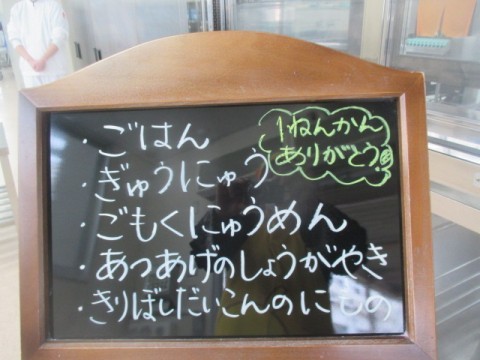 ・ごはん
・ぎゅうにゅう
・ごもくにゅうめん
・あつあげのしょうがやき
・きりぼしだいこんのにもの
1ねんかん
ありがとう